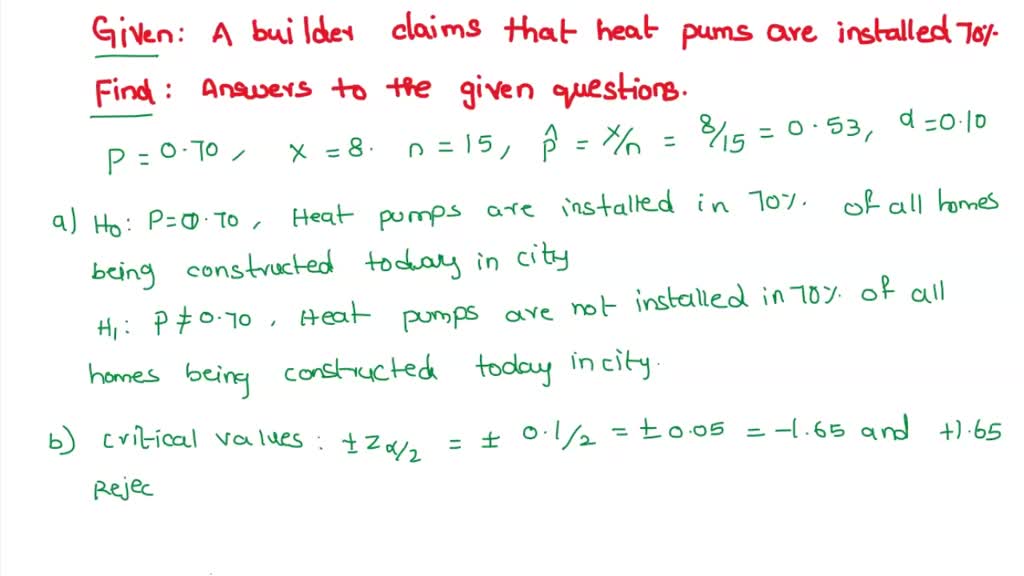 Given: A builder claims that heat pums are installed 70%.
Find: Answers to the given questions.
P = 0.70, x = 8. n = 15, p̂ = x/n = 8/15 = 0.53, α = 0.10
a) H₀: P = 0.70, Heat pumps are installed in 70%. of all homes
being constructed today in city
H₁: P ≠ 0.70, Heat pumps are not installed in 70% of all
homes being constructed today in city.
b) critical values: ± Z α/2 = ± 0.1/2 = ± 0.05 = -1.65 and +1.65
Rejec